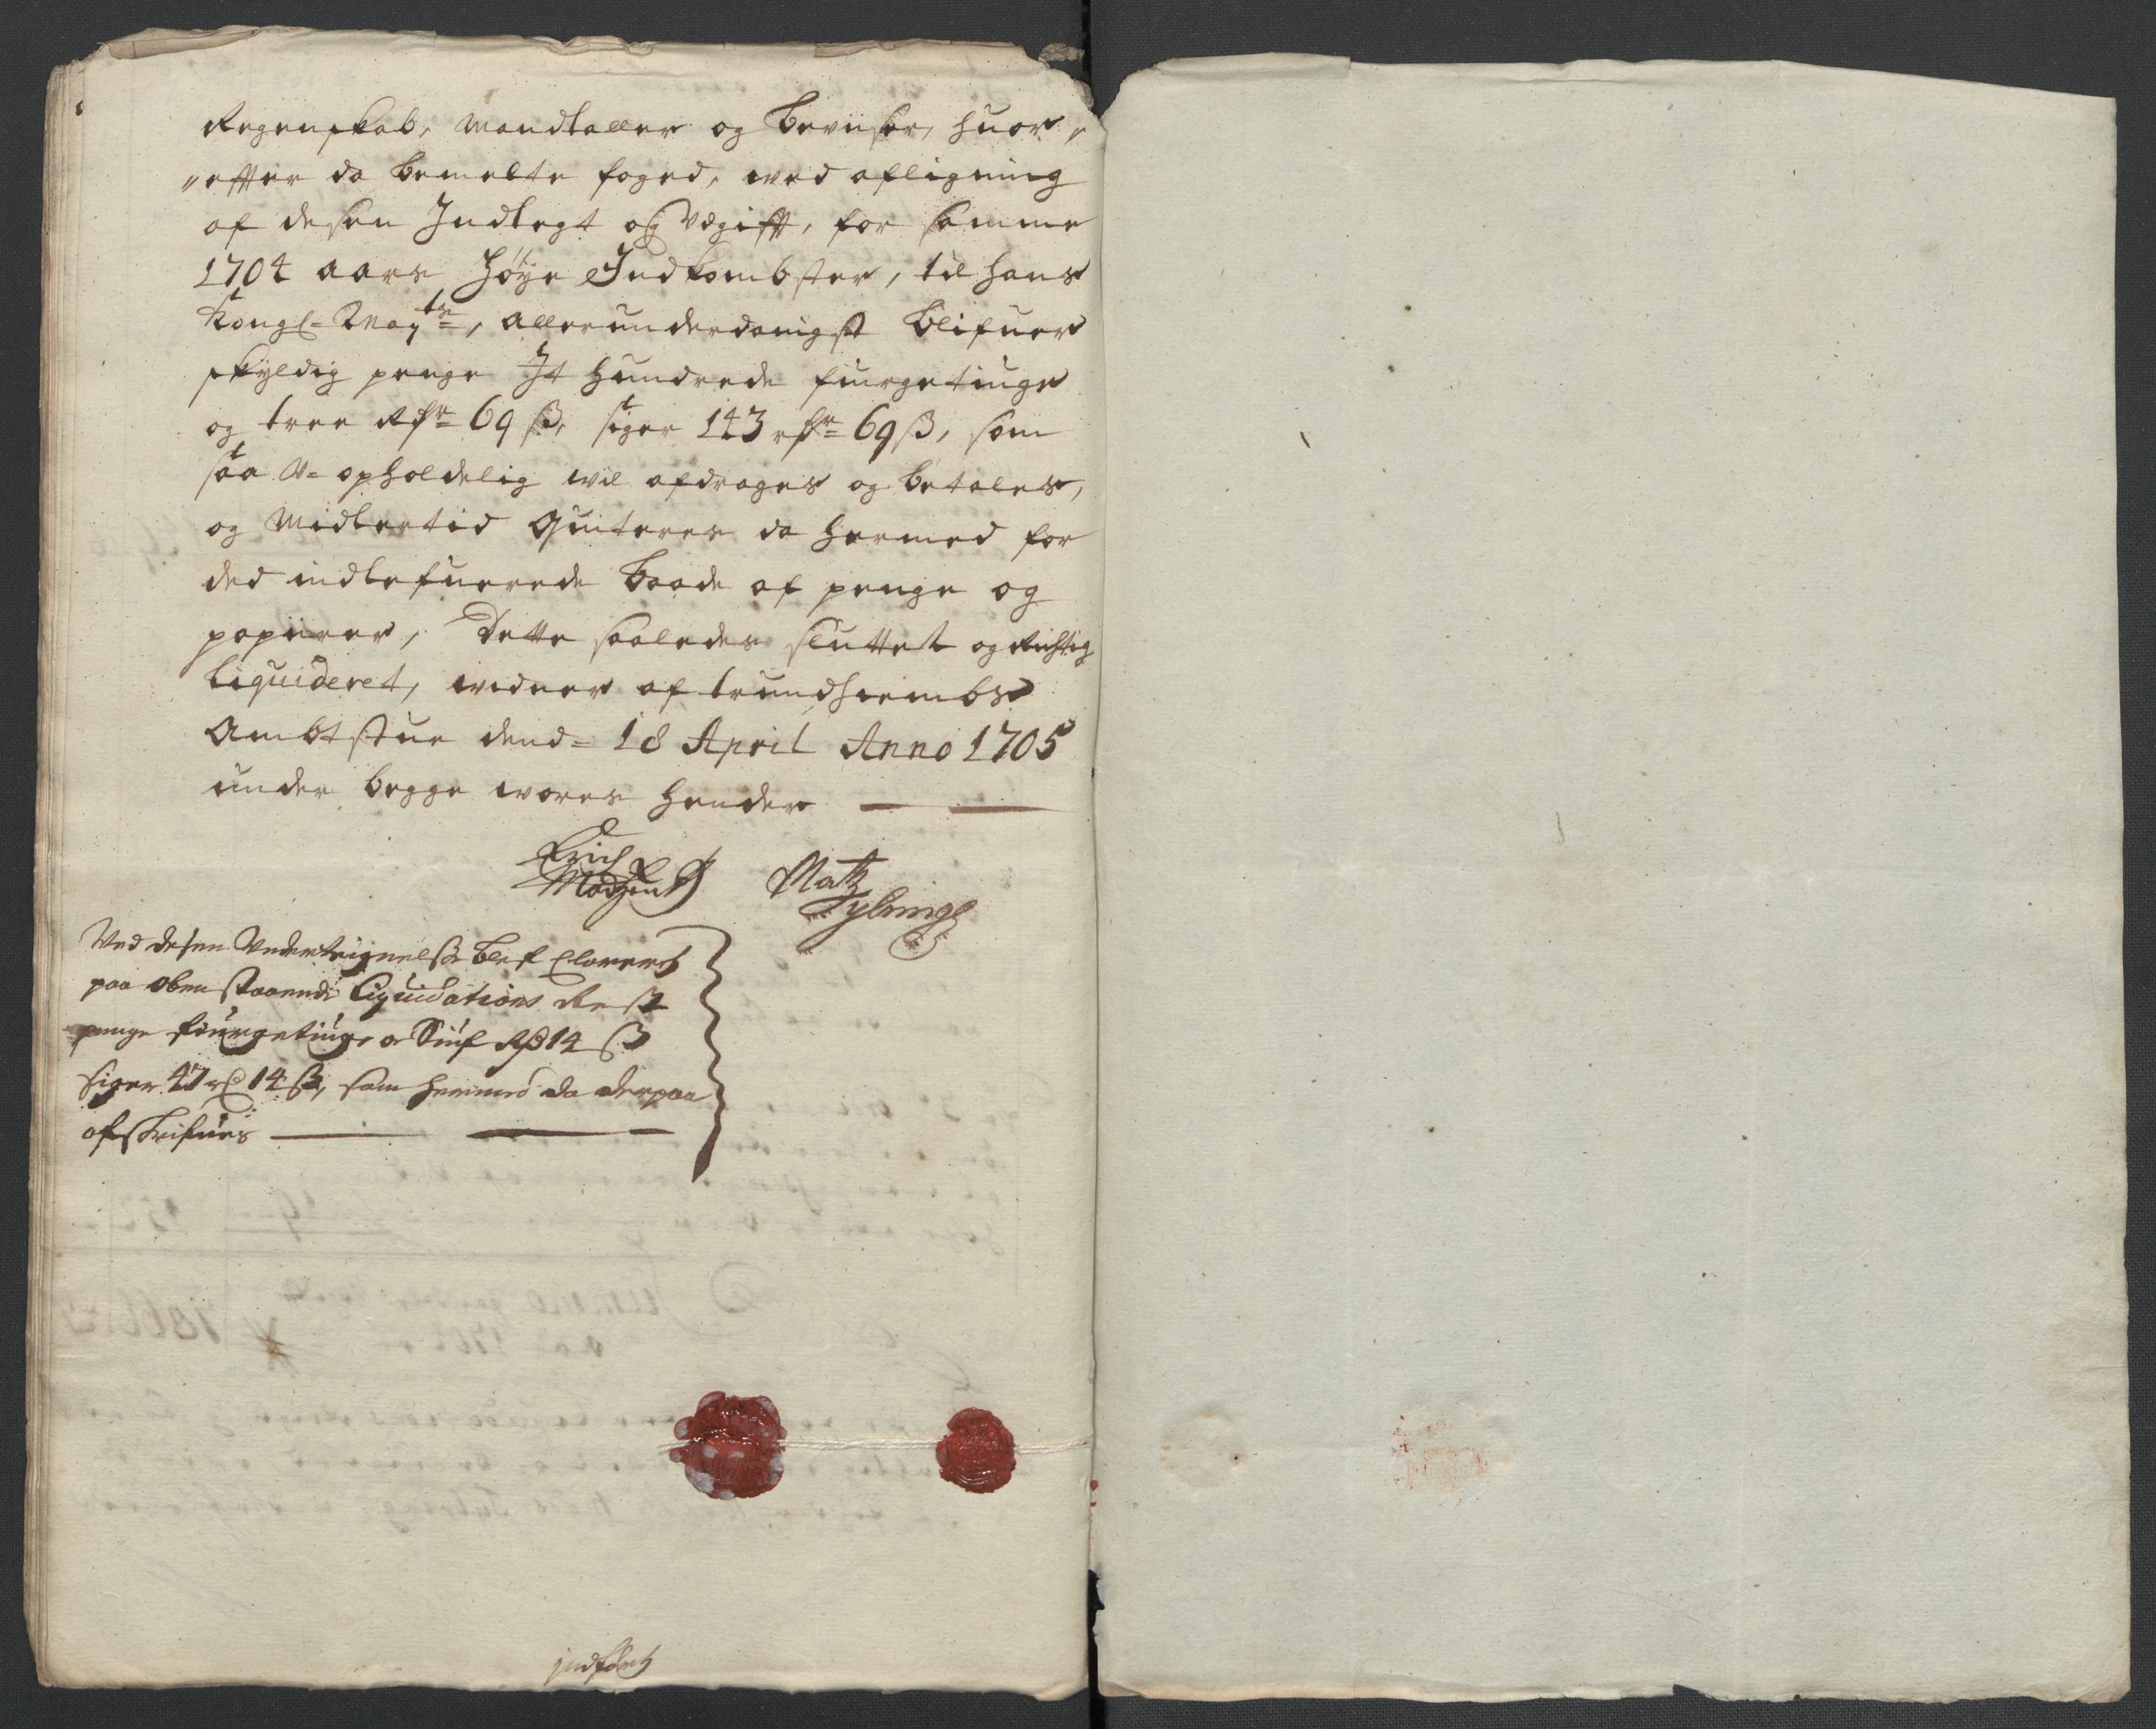 Regenskab, Mandtaller og beviiser, huor„
„effter da bemelte foged, ved afligning
af desen Indtegt og Udgifft, for samme
1704 aars høye Indkombster, til hans
Kongl= May:ts, allerunderdanigst blifuer
skyldig penge It hundrede fiurgetiuge
og tree Rdr 69 ß, siger 143 rdr 69 ß, som
saa U=opholdelig vil afdrages og betales,
og Midlertid Quiteres da hermed for
ded indlefuerede baade af penge og
papiirer, Dette saaledes sluttet og Richtig
liquideret, vidner af trundhiembs
Ambtstue dend= 18 April Anno 1705
under begge vores hender
Erich
Madzen
Matz
Tyldringh
Ved desen Underteignelse blef Clarerit
paa obenstaaende Liquidations Rest
penge fiurgetiuge og Siuf Rd 14 ß
siger 47 rd 14 ß, som hermed da derpaa
afskrifues
indført